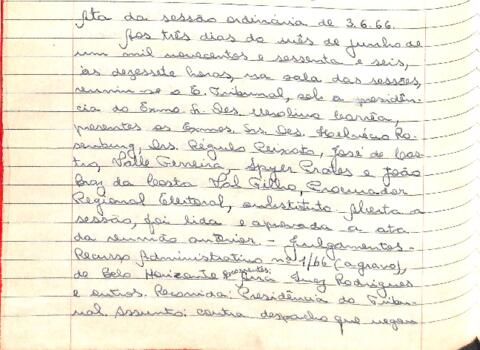 Ata da sessão ordinária de 3.6.66.
Aos três dias do mês de junho de
um mil novecentos e sessenta e seis,
às dezessete horas, na sala das sessões,
reuniu-se o E. Tribunal, sob a presidên-
cia do Exmo. Sr. Des. Corrêa,
presentes os Exmos. Srs. Des. Helvécio Ro-
senburg, Drs. Régulo Peixoto, José de Cas-
tro, Valle Ferreira, Spyer Prates e João
Braz da Costa Val Filho, Procurador
Regional Eleitoral, substituto. Aberta a
sessão, foi lida e aprovada a ata
da reunião anterior. - Julgamentos -
Recurso Administrativo nº 1/66 (agravo),
de Belo Horizonte. Inez Rodrigues
e outros. Recorrida: Presidência do Tribu-
nal. Assunto: contra despacho que negou